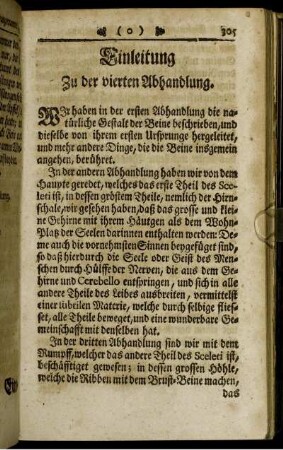 (0) 305
Einleitung
Zu der vierten Abhandlung.
WIr haben in der ersten Abhandlung die na-
türliche Gestalt der Beine beschrieben, und
dieselbe von ihrem ersten Ursprunge hergeleitet,
und mehr andere Dinge, die die Beine insgemein
angehen, berühret.
In der andern Abhandlung haben wir von dem
Haupte geredet, welches das erste Theil des Sce-
leti ist, in dessen gröstem Theile, nemlich der Hirn-
schale, wir gesehen haben, daß das grosse und klei-
ne Gehirne mit ihrem Häutgen als dem Wohn-
Platz der Seelen darinnen enthalten werden: De-
me auch die vornehmsten Sinnen beygefüget sind,
so daß hierdurch die Seele oder Geist des Men-
schen durch Hülffe der Nerven, die aus dem Ge-
hirne und Cerebello entspringen, und sich in alle
andere Theile des Leibes ausbreiten, vermittelst
einer subtilen Materie, welche durch selbige flies-
set, alle Theile beweget, und eine wunderbare Ge-
meinschafft mit denselben hat.
In der dritten Abhandlung sind wir mit dem
Rumpff, welcher das andere Theil des Sceleti ist,
beschäfftiget gewesen; in dessen grossen Höhle,
welche die Ribben mit dem Brust-Beine machen,
das